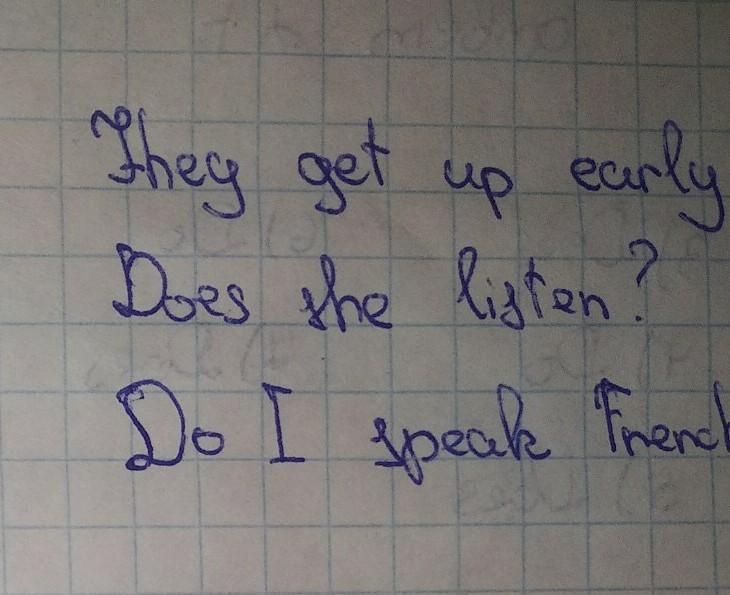 They get up early
Does she listen?
Do I speak French